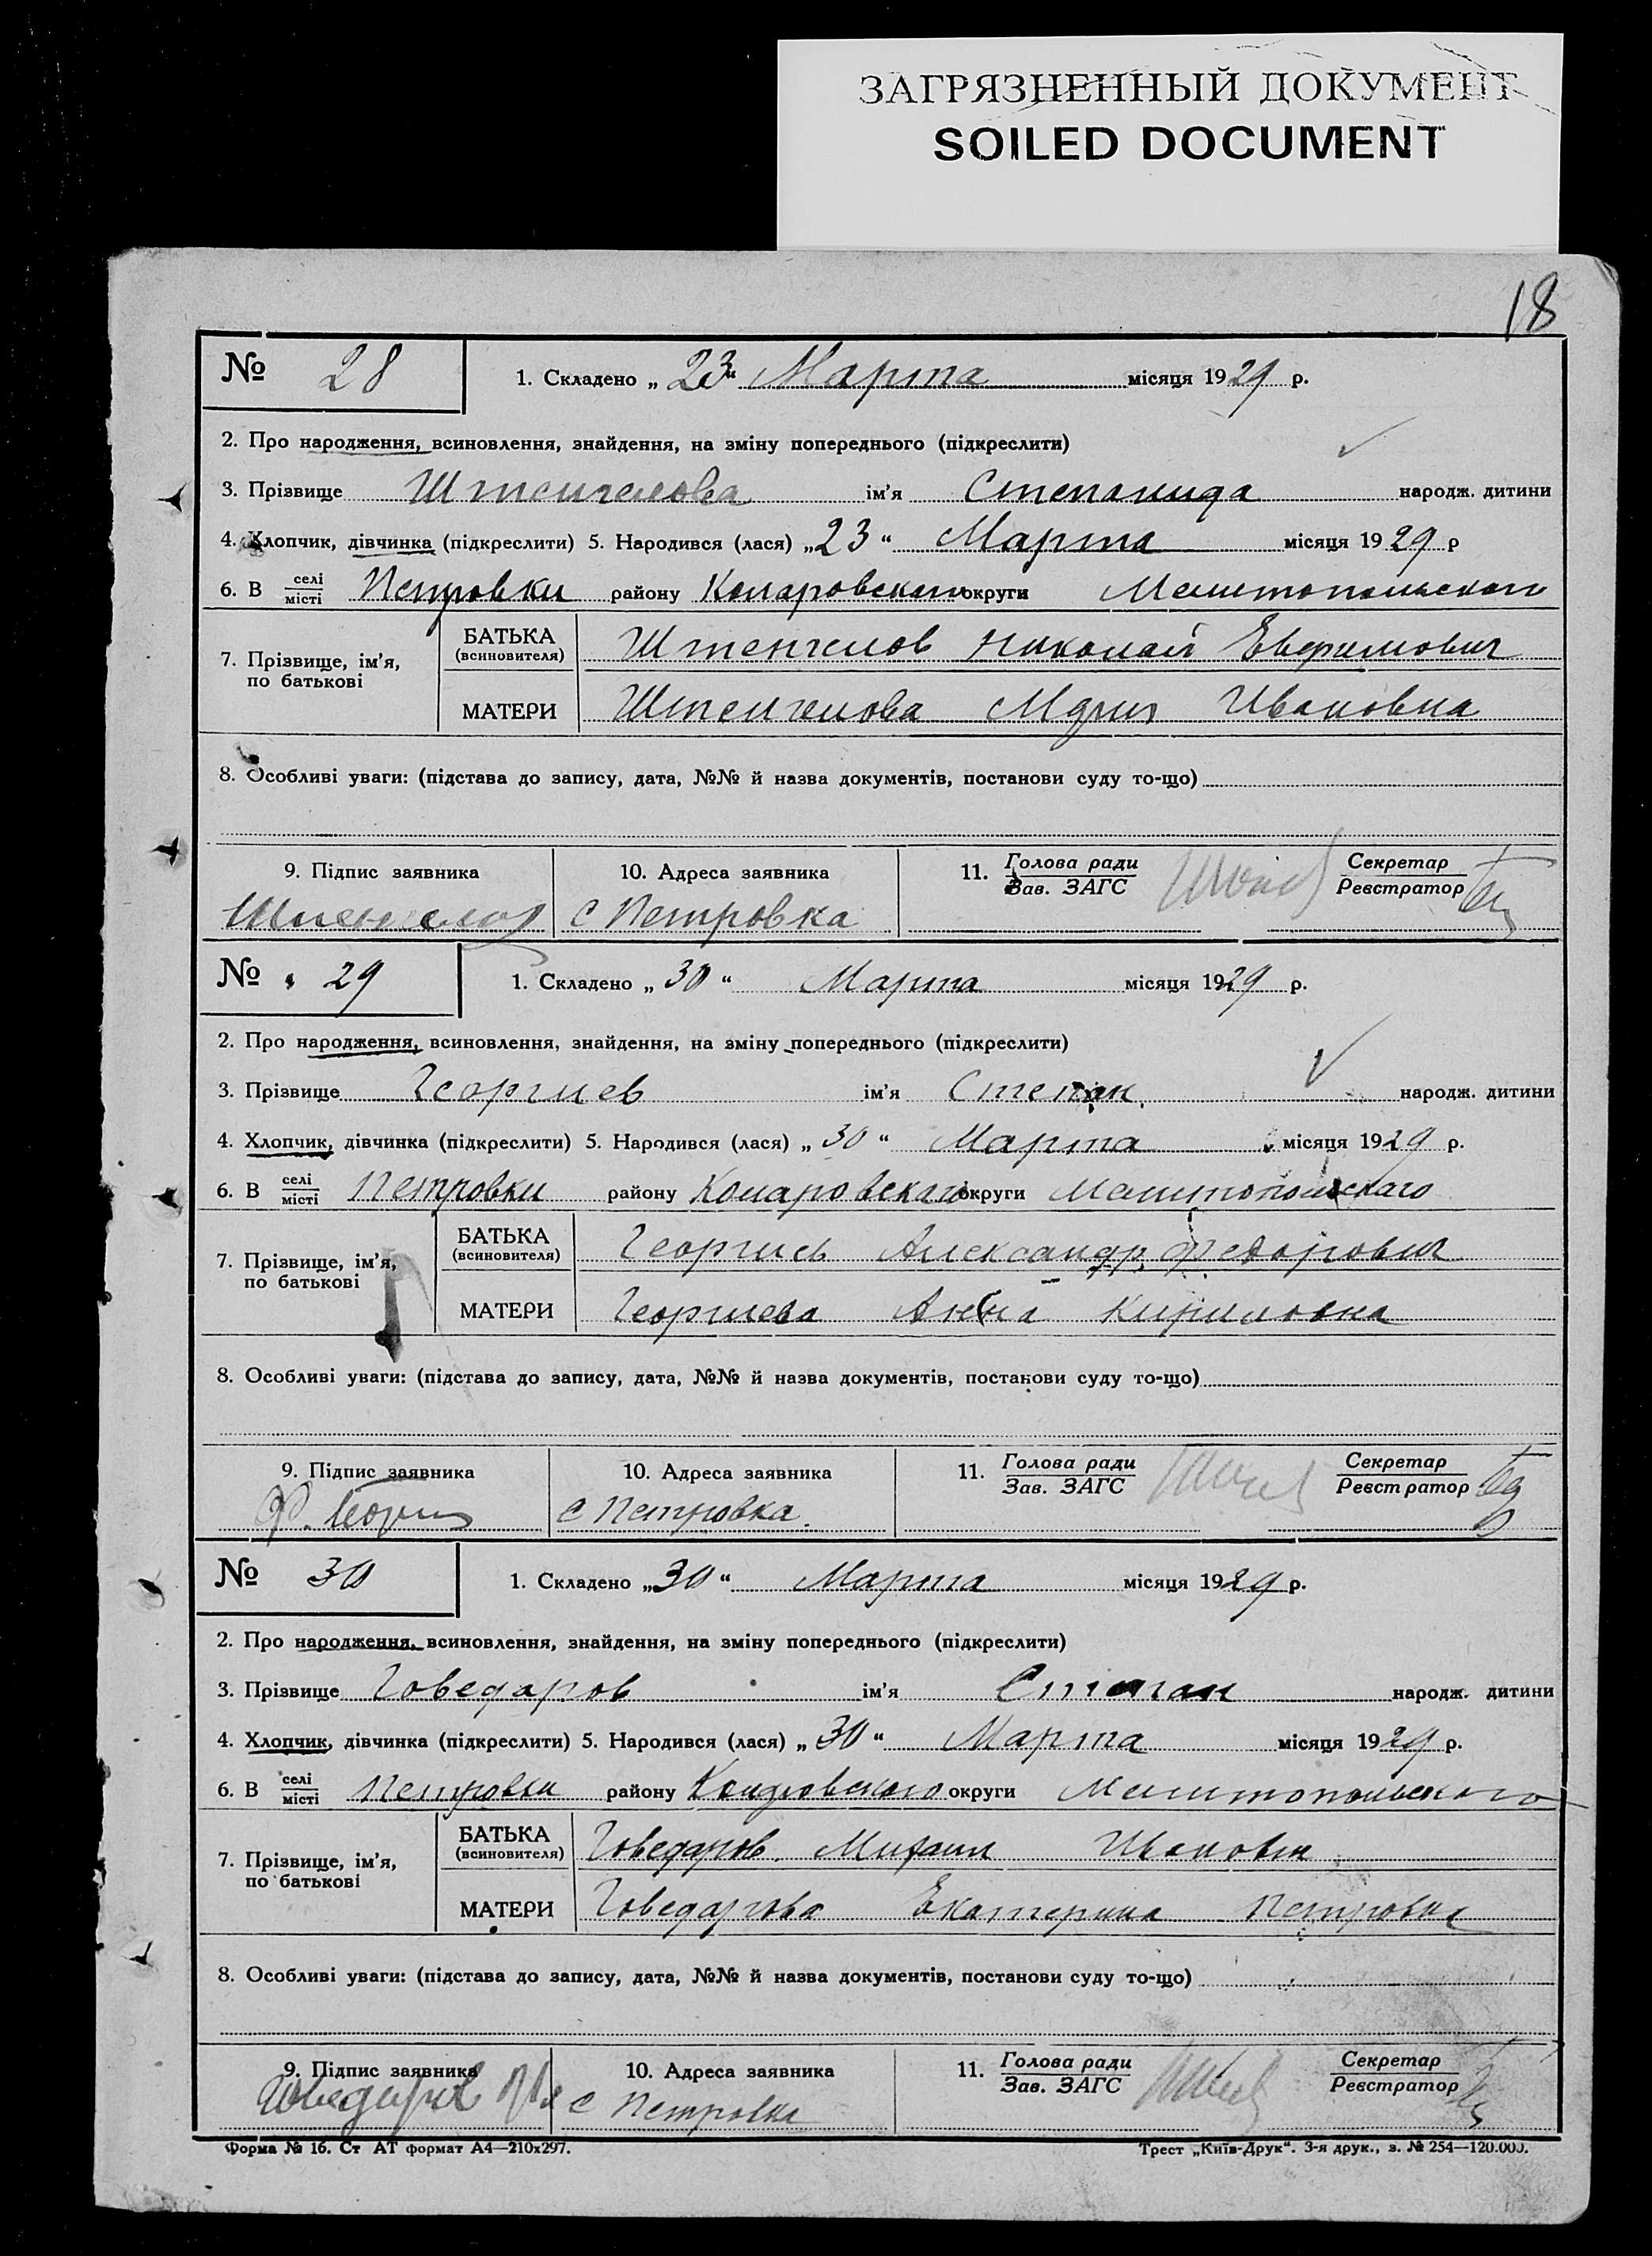 ЗАГРЯЗНЕННЫЙ ДОКУМЕНТ
SOILED DOCUMENT
18
№ 28 1. Складено „ 23 “ Марта місяця 1929 р.
2. Про народження, всиновлення, знайдення, на зміну попереднього (підкреслити)
3. Прізвище Штенгелова ім’я Степанида народж. дитини
4. Хлопчик, дівчинка (підкреслити) 5. Народився (лася) „ 23 “ Марта місяця 1929 р
6. В селі місті Петровки району Комаровскаго округи Мелитопольскаго
7. Прізвище, ім’я, по батькові БАТЬКА (всиновителя) Штенгелов Николай Евфимович
МАТЕРИ Штенгелова Мария Ивановна
8. Особливі уваги: (підстава до запису, дата, №№ й назва документів, постанови суду то-що)
9. Підпис заявника 10. Адреса заявника 11. Голова ради Зав. ЗАГС Секретар Реєстратор
Штенгелов с Петровка
№ 29 1. Складено „ 30 “ Марта місяця 1929 р.
2. Про народження, всиновлення, знайдення, на зміну попереднього (підкреслити)
3. Прізвище Георгиев ім’я Степан народж. дитини
4. Хлопчик, дівчинка (підкреслити) 5. Народився (лася) „ 30 “ Марта місяця 1929 р.
6. В селі місті Петровки району Комаровскаго округи Мелитопольскаго
7. Прізвище, ім’я, по батькові БАТЬКА (всиновителя) Георгиев Александр Федорович
МАТЕРИ Георгиева Анна Кириловна
8. Особливі уваги: (підстава до запису, дата, №№ й назва документів, постанови суду то-що)
9. Підпис заявника 10. Адреса заявника 11. Голова ради Зав. ЗАГС Секретар Реєстратор
с Петровка.
№ 30 1. Складено „ 30 “ Марта місяця 1929 р.
2. Про народження, всиновлення, знайдення, на зміну попереднього (підкреслити)
3. Прізвище Говедаров ім’я Степан народж. дитини
4. Хлопчик, дівчинка (підкреслити) 5. Народився (лася) „ 30 “ Марта місяця 1929 р.
6. В селі місті Петровки району Комаровского округи Мелитопольского
7. Прізвище, ім’я, по батькові БАТЬКА (всиновителя) Говедаров Михаил Иванович
МАТЕРИ Говедарова Екатерина Петровна
8. Особливі уваги: (підстава до запису, дата, №№ й назва документів, постанови суду то-що)
9. Підпис заявника 10. Адреса заявника 11. Голова ради Зав. ЗАГС Секретар Реєстратор
Говедаров с Петровка
Форма № 16. Ст АТ формат А4—210х297. Трест „Київ-Друк“. 3-я друк., з. № 254—120.000.